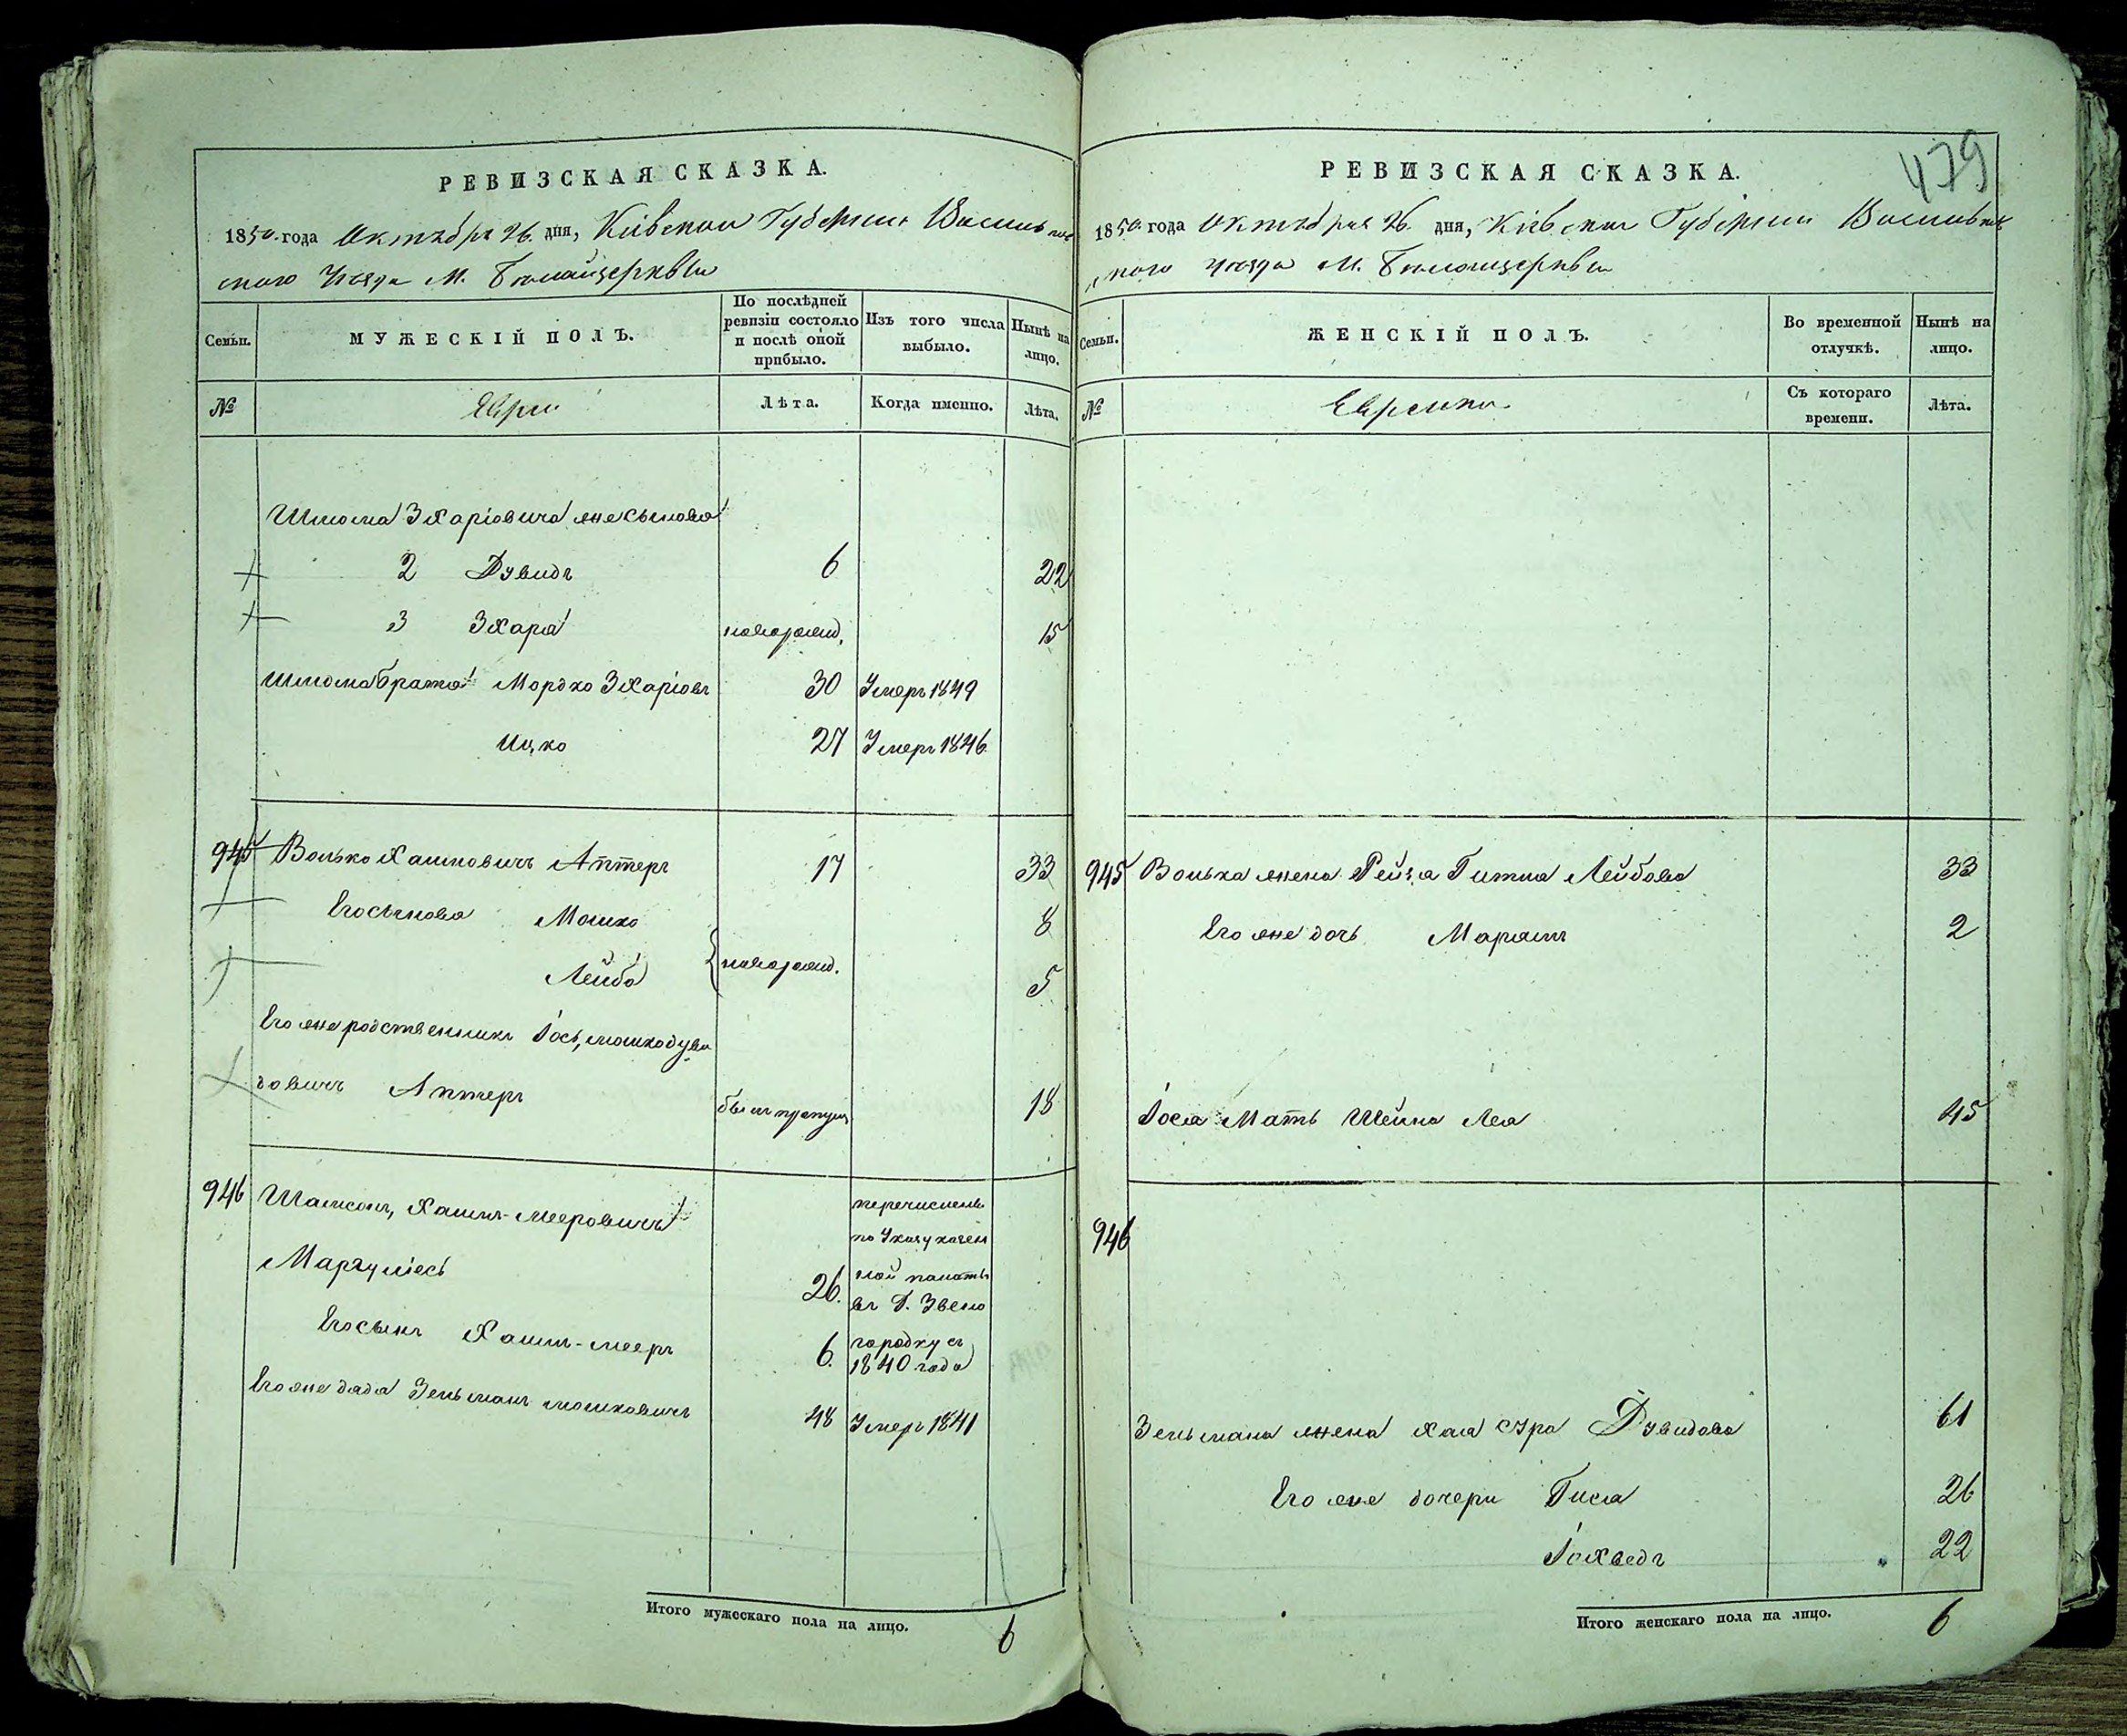 РЕВИЗСКАЯ СКАЗКА.
1850. года Октября 26. дня, Кіевской Губерніи Васильков
ского уѣзда М. Бѣлойцеркви
Семьи.
МУЖЕСКІЙ ПОЛЪ.
По послѣдней ревизіи состояло и послѣ оной прибыло.
Изъ того числа выбыло.
Нынѣ на лицо.
№
Евреи
Лѣта.
Когда именно.
Лѣта.
Шлома Зхаріовича же сыновья
2 Дувидъ 6 22
3 Зхаря новорожд. 15
Шлома братья Мордко Зхаріовъ 30 Умеръ 1849
Ицко 27 Умеръ 1846.
945 Волько Хаимовичъ Аптеръ 17 33
Его сыновья Мошко 8
Лейба } новорожд. 5
Его же родственникъ Іось, мошко дуви
довичъ Аптеръ былъ пропущ 18
946 Шамсонъ, Хаимъ-мееровичъ
Маргуліесъ 26.
перечисленъ
по Указу казен
ной палаты
въ Г. Звено
городку съ
1840 года
Его сынъ Хаимъ-мееръ 6.
Его же дядя Зельманъ мошковичъ 48 Умеръ 1841
Итого мужескаго пола на лицо. 6
479
РЕВИЗСКАЯ СКАЗКА.
1850. года Октября 26. дня, Кіевской Губерніи Васильков
ского уѣзда М. Бѣлойцеркви
Семьи.
ЖЕНСКІЙ ПОЛЪ.
Во временной отлучкѣ.
Нынѣ на лицо.
№
Еврейки.
Съ котораго времени.
Лѣта.
945 Волька жена Рейза Гитля Лейбова 33
Его же дочь Маріямъ 2
Іося Мать Шейна Лея 45
946
Зельмана жена Хая Сура Дувидова 61
Его же дочери Гися 26
Іохведъ 22
Итого женскаго пола на лицо. 6